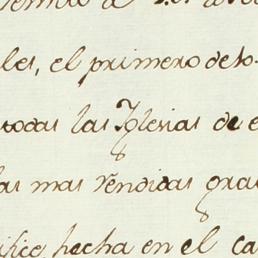 les, el primero de to-
todas las Iglesias de e
las mas rendidas grac
ifice, hecha en el ca